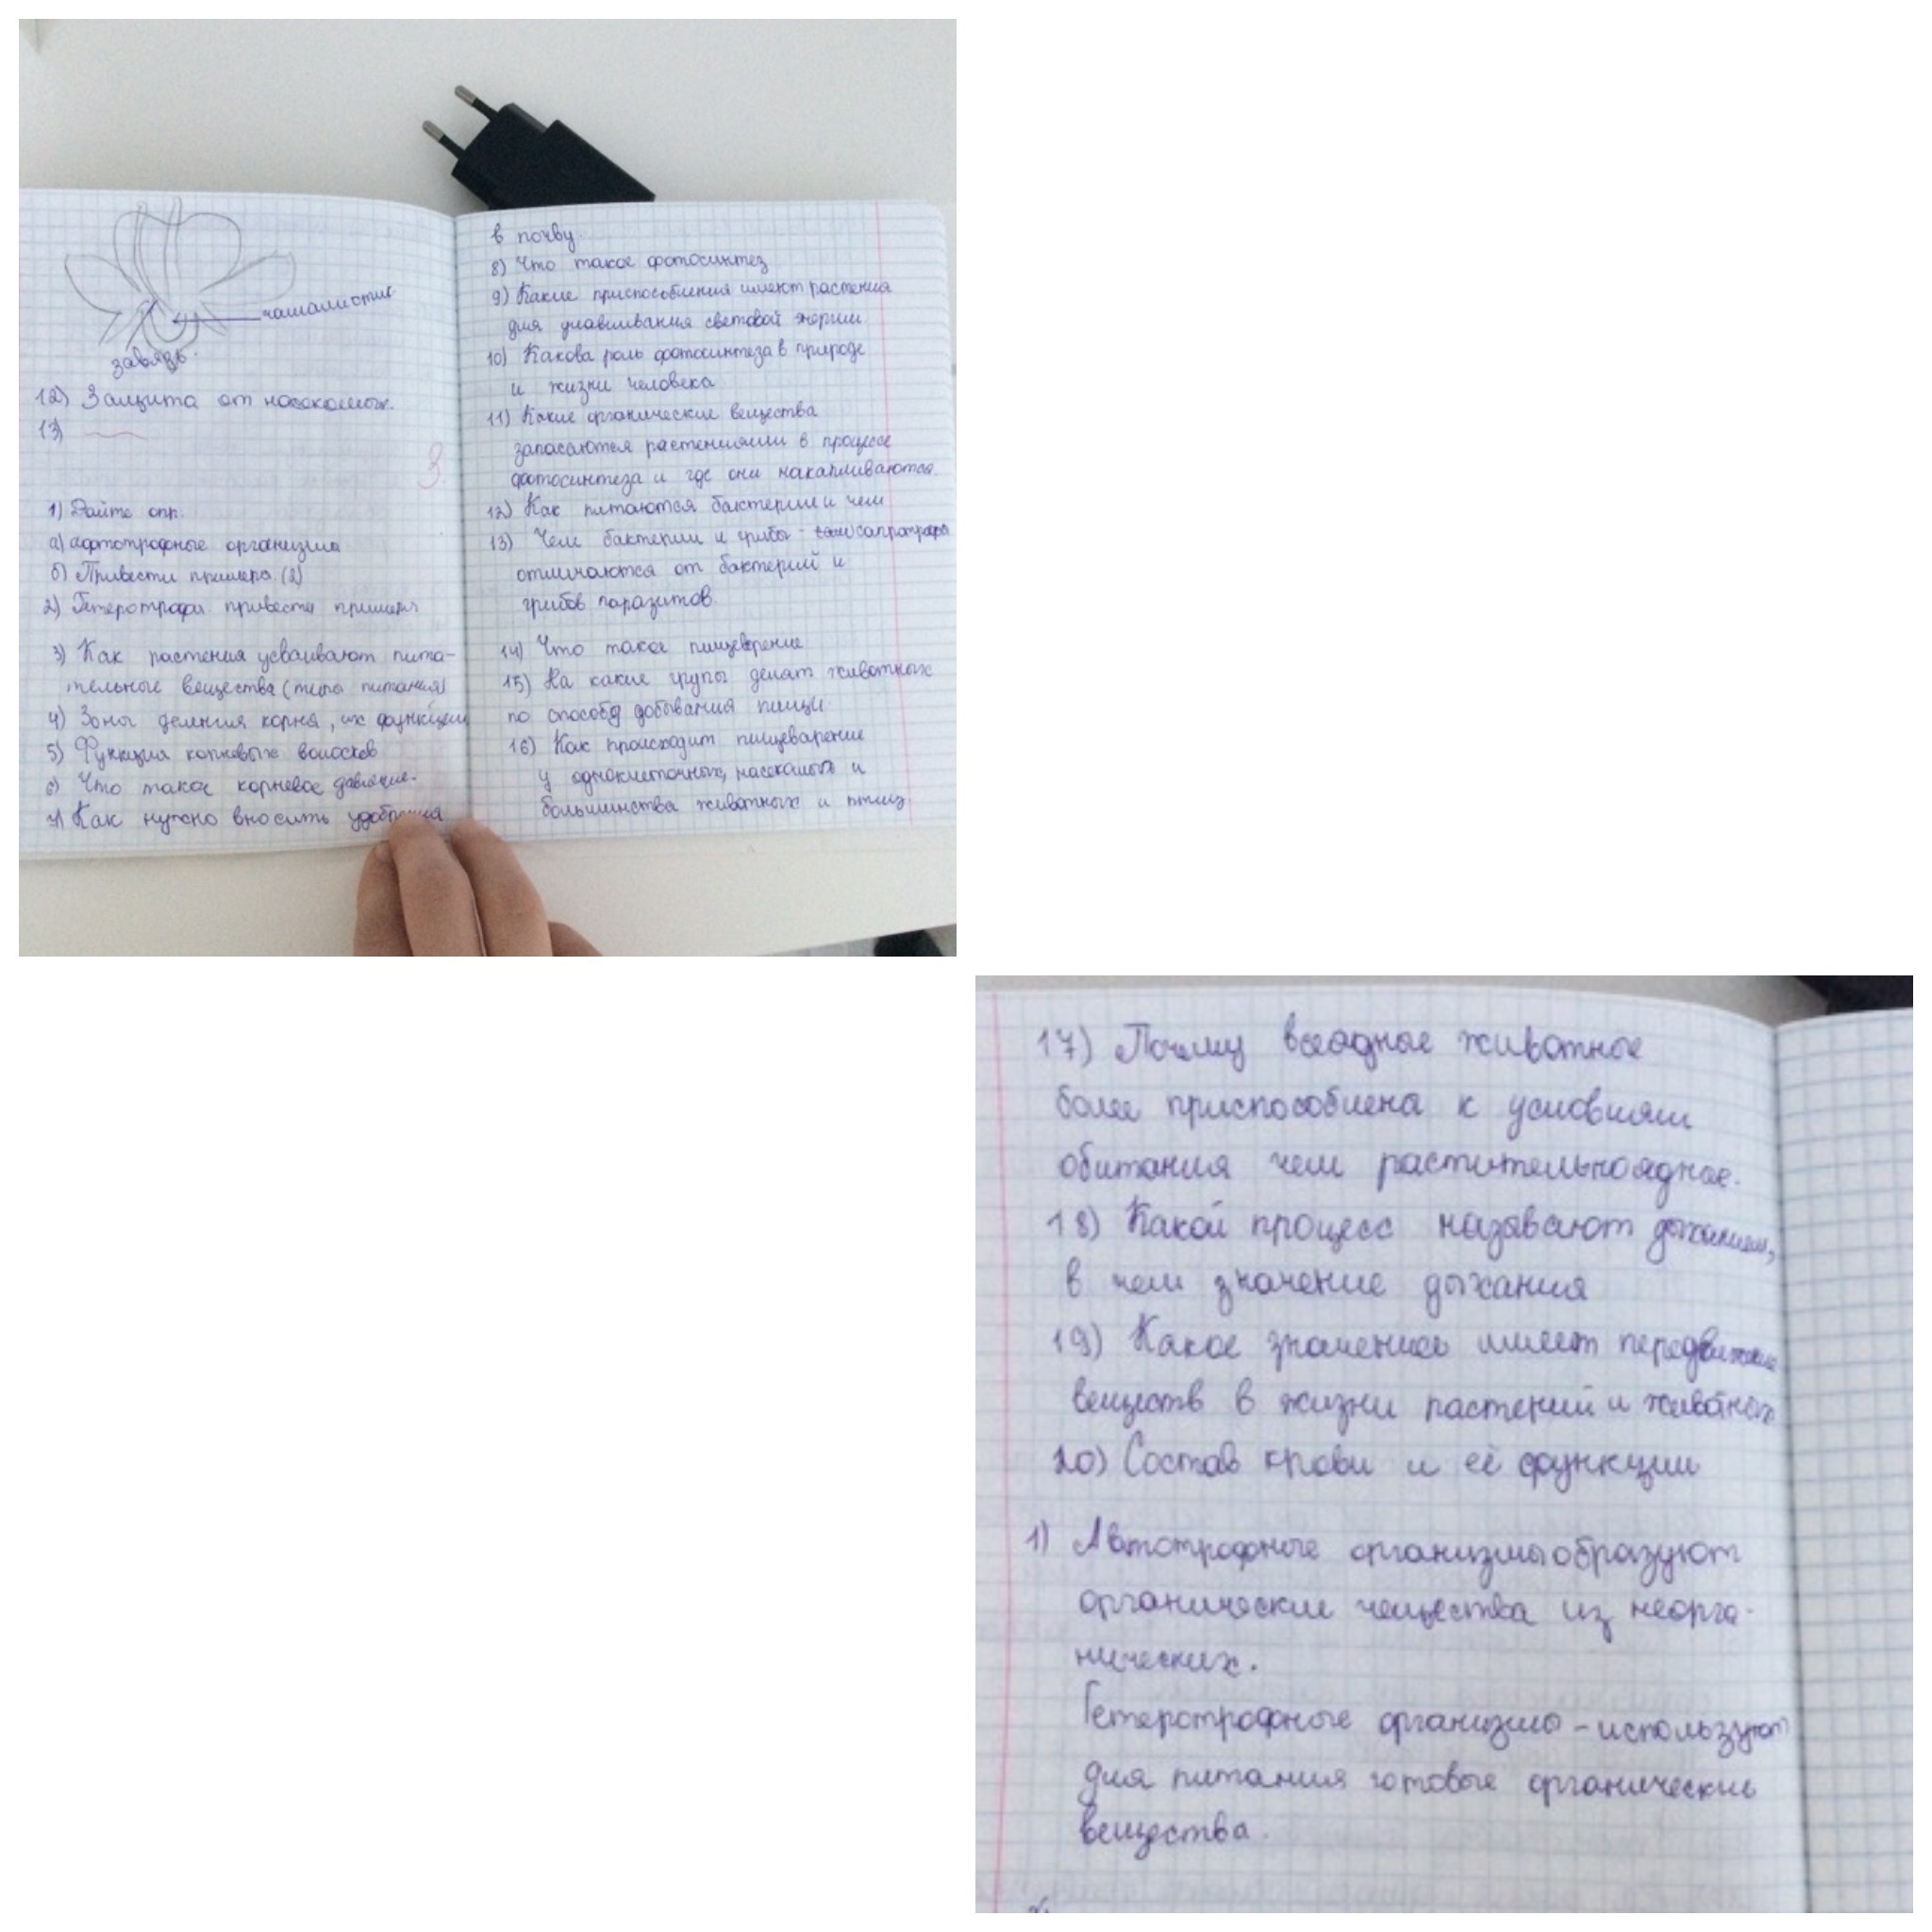 чашелистик
завязь.
12) Защита от насекомых.
13)
3
1) Дайте опр.
а) афтотрофные организмы
б) Привести примера (2)
2) Гетеротрофы привести примеры
3) Как растения усваивают пита-
тельные вещества (типы питания)
4) Зоны деления корня, их функции
5) Функция корневых волосков
6) Что такое корневое давление.
7) Как нужно вносить удобрения
в почву.
8) Что такое фотосинтез
9) Какие приспособления имеют растения
для улавливания световой энергии
10) Какова роль фотосинтеза в природе
и жизни человека
11) Какие органические вещества
запасаются растениями в процессе
фотосинтеза и где они накапливаются.
12) Как питаются бактерии и чем
13) Чем бактерии и грибы - сапротрофы
отличаются от бактерий и
грибов паразитов.
14) Что такое пищеверение
15) На какие групы делят животных
по способу добывания пищи
16) Как происходит пищеварение
у одноклеточных, насекомых и
большинства животных и птиц
17) Почему всеядные животные
более приспособлена к условиям
обитания чем растительноядные.
18) Какой процесс называют дыханием,
в чем значение дыхания
19) Какое значение имеет передвижение
веществ в жизни растений и живатных
20) Состав крови и её функции
1) Автотрофные организмы образуют
органические чещества из неорга-
нических.
Гетеротрофные организмы - используют
для питания готовые органические
вещества.